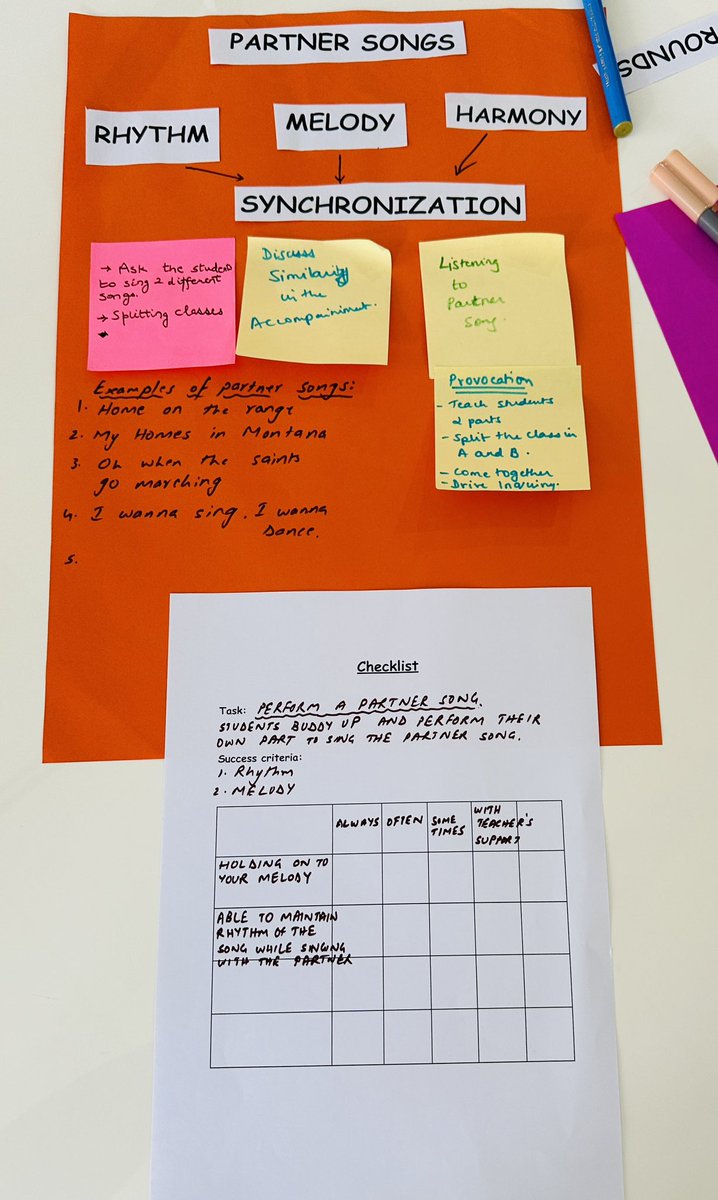 PARTNER SONGS
ROUNDS
RHYTHM
MELODY
HARMONY
SYNCHRONIZATION
→ Ask the student
to sing 2 different
songs.
→ Splitting classes
Discuss
Similarity
in the
Accompainiment.
Listening
to
Partner
Song.
Provocation
- Teach students
2 parts
- Split the class in
A and B.
- Come together
- Drive Inquiry.
Examples of partner songs:
1. Home on the range
2. My Homes in Montana
3. Oh when the saints
go marching
4. I wanna sing, I wanna
Dance.
5.
Checklist
Task: PERFORM A PARTNER SONG.
STUDENTS BUDDY UP AND PERFORM THEIR
OWN PART TO SING THE PARTNER SONG.
Success criteria:
1. Rhythm
2. MELODY
ALWAYS OFTEN SOME TIMES WITH TEACHER'S SUPPORT
HOLDING ON TO
YOUR MELODY
ABLE TO MAINTAIN
RHYTHM OF THE
SONG WHILE SINGING
WITH THE PARTNER